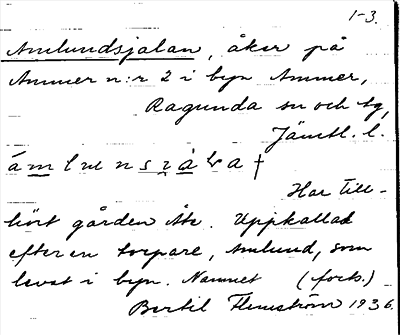 1-3.
Amlundsjalan, åker på
Ammer n:r 2 i byn Ammer,
Ragunda sn och tg,
Jämtl. l.
Har till-
hört gården Åte. Uppkallad
efter en torpare, Amlund, som
levat i byn. Namnet (forts.)
Bertil Flemström 1936.